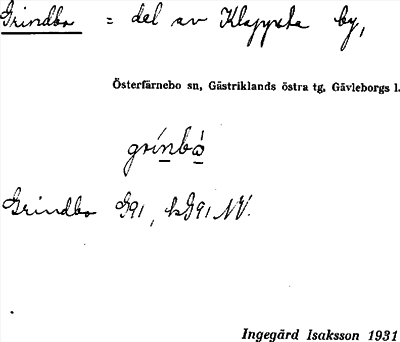 Grindbo = del av Klappsta by,
Österfärnebo sn, Gästriklands östra tg, Gävleborgs l.
grínbò
Grindbo G91, kG91 NV.
Ingegärd Isaksson 1931